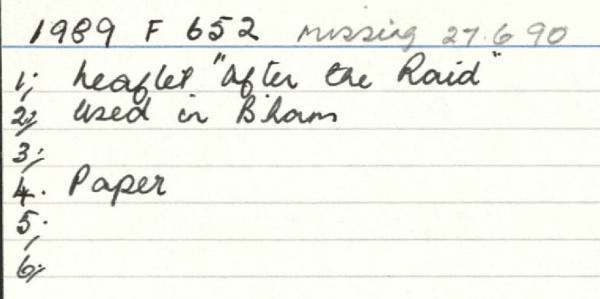 1989 F 652 missing 27.6 90
1; Leaflet "After the Raid"
2; Used in B'ham
3;
4. Paper
5.
6;